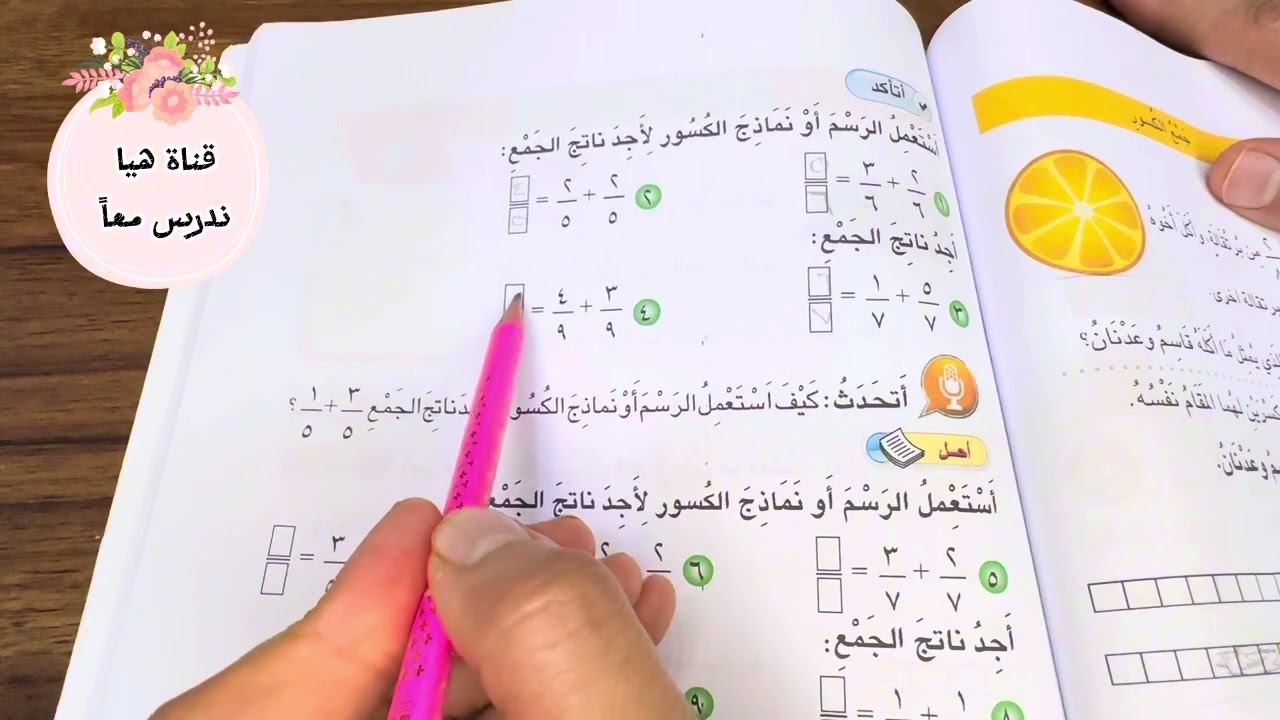 قناة هيا
ندرس معاً
أتأكد
أَسْتَعْمِلُ الرَسْمَ أَوْ نَمَاذِجَ الكُسُورِ لِأَجِدَ نَاتِجَ الجَمْعِ:
١ ٢/٦ + ٣/٦ = ٥/٦
٢ ٢/٥ + ٢/٥ = ٤/٥
أَجِدُ نَاتِجَ الجَمْعِ:
٣ ٥/٧ + ١/٧ = ٦/٧
٤ ٣/٩ + ٤/٩ =
أَتَحَدَثُ: كَيْفَ اَسْتَعْمِلُ الرَسْمَ أَوْ نَماذِجَ الكُسُور ناتِجَ الجَمْعِ ٣/٥ + ١/٥ ؟
أحل
أَسْتَعْمِلُ الرَسْمَ أَو نَمَاذِجَ الكُسور لِأَجِدَ نَاتِجَ الجَمْعِ
٥ ٢/٧ + ٣/٧ =
٦ ٢ ٢
٣ =
أَجِدُ نَاتِجَ الجَمْعِ:
٨ ١ + ١ =
٩
جَمْعُ الكُسُورِ
مِنْ بُرتُقالَةٍ، وَأَكَلَ أَخُوهُ
برتقالة أخرى.
يُمَثِلُ مَا أَكَلَهُ قَاسِمُ وعَدْنَانُ؟
كَسْرَيْنِ لهما المَقَامُ نَفْسُهُ.
وعَدْنَانُ.